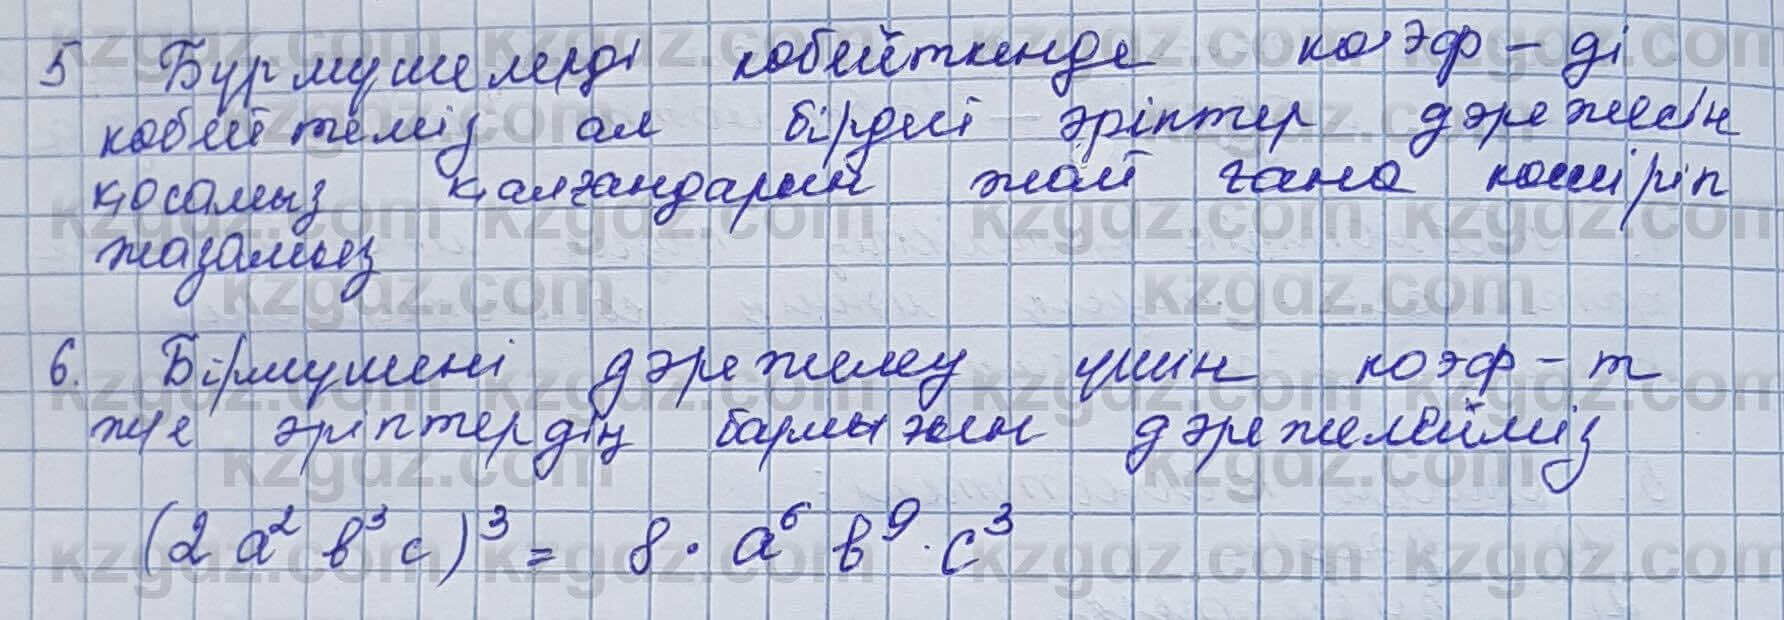 5 Бурмушелерді кобейткенде коэф-ді
кобейтеміз ал бірдей әріптер дәрежесін
қосамыз қалғандарын жай ғана көшіріп
жазамыз
6. Бірмушені дәрежелеу үшін коэф-т
және әріптердің барлығын дәрежелейміз
(2 a² b³ c)³ = 8 · a⁶ b⁹ · c³